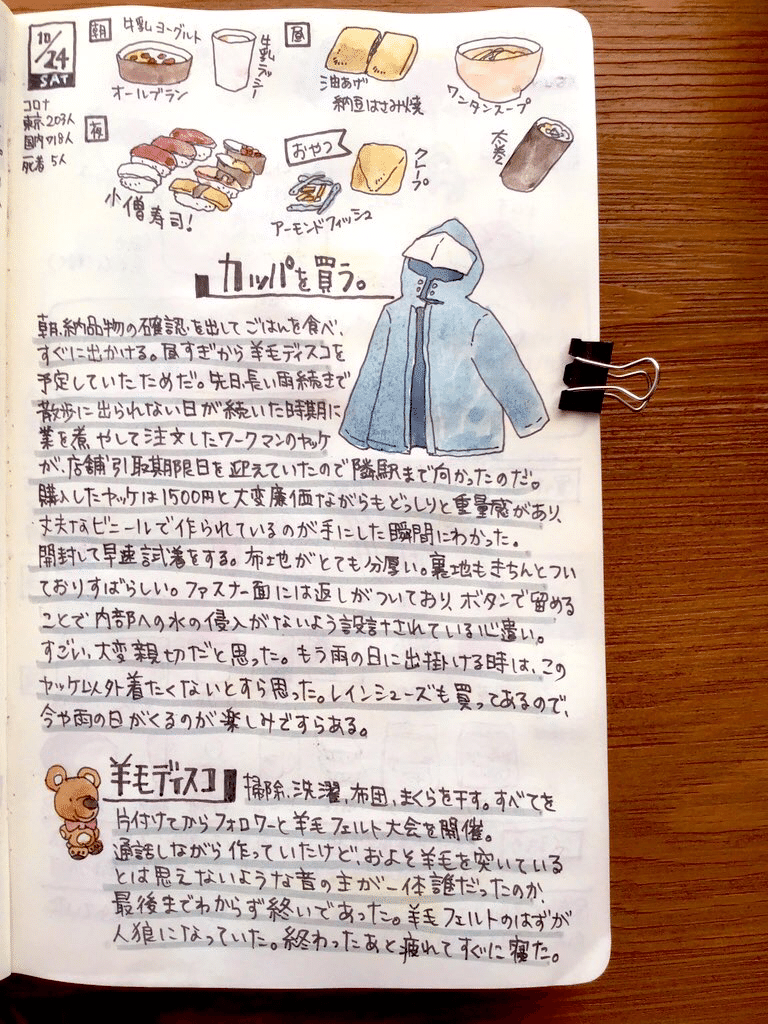 10/24
SAT
コロナ
東京203人
国内718人
死者5人
朝
牛乳ヨーグルト
オールブラン
牛乳ラッシー
昼
油あげ
納豆はさみ焼
ワンタンスープ
太巻
夜
小僧寿司!
おやつ
アーモンドフィッシュ
クレープ
カッパを買う。
朝、納品物の確認を出してごはんを食べ、
すぐに出かける。昼すぎから羊毛ディスコを
予定していたためだ。先日長い雨続きで
散歩に出られない日が続いた時期に
業を煮やして注文したワークマンのヤッケ
が、店舗引取期限日を迎えていたので隣駅まで向かったのだ。
購入したヤッケは1500円と大変廉価ながらもどっしりと重量感があり、
丈夫なビニールで作られているのが手にした瞬間にわかった。
開封して早速試着をする。布地がとても分厚い。裏地もきちんとつい
ておりすばらしい。ファスナー面には返しがついており、ボタンで留める
ことで内部への水の侵入がないよう設計されている心遣い。
すごい、大変親切だと思った。もう雨の日に出掛ける時は、この
ヤッケ以外着たくないとすら思った。レインシューズも買ってあるので、
今や雨の日がくるのが楽しみですらある。
羊毛ディスコ
掃除、洗濯、布団、まくらを干す。すべてを
片付けてからフォロワーと羊毛フェルト大会を開催。
通話しながら作っていたけど、およそ羊毛を突いている
とは思えないような音の主が一体誰だったのか、
最後までわからず終いであった。羊毛フェルトのはずが
人狼になっていた。終わったあと疲れてすぐに寝た。